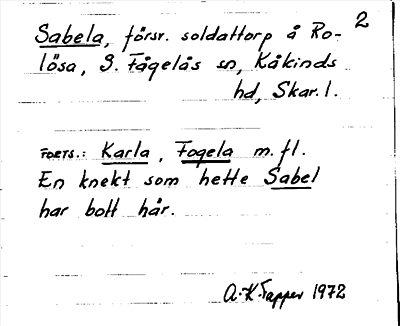 2
Sabela, försv. soldattorp å Ro-
lösa, S. Fågelås sn, Kåkinds
hd, Skar. l.
FORTS.: Karla, Fogela m. fl.
En knekt som hette Sabel
har bott här.
A-K. Tapper 1972